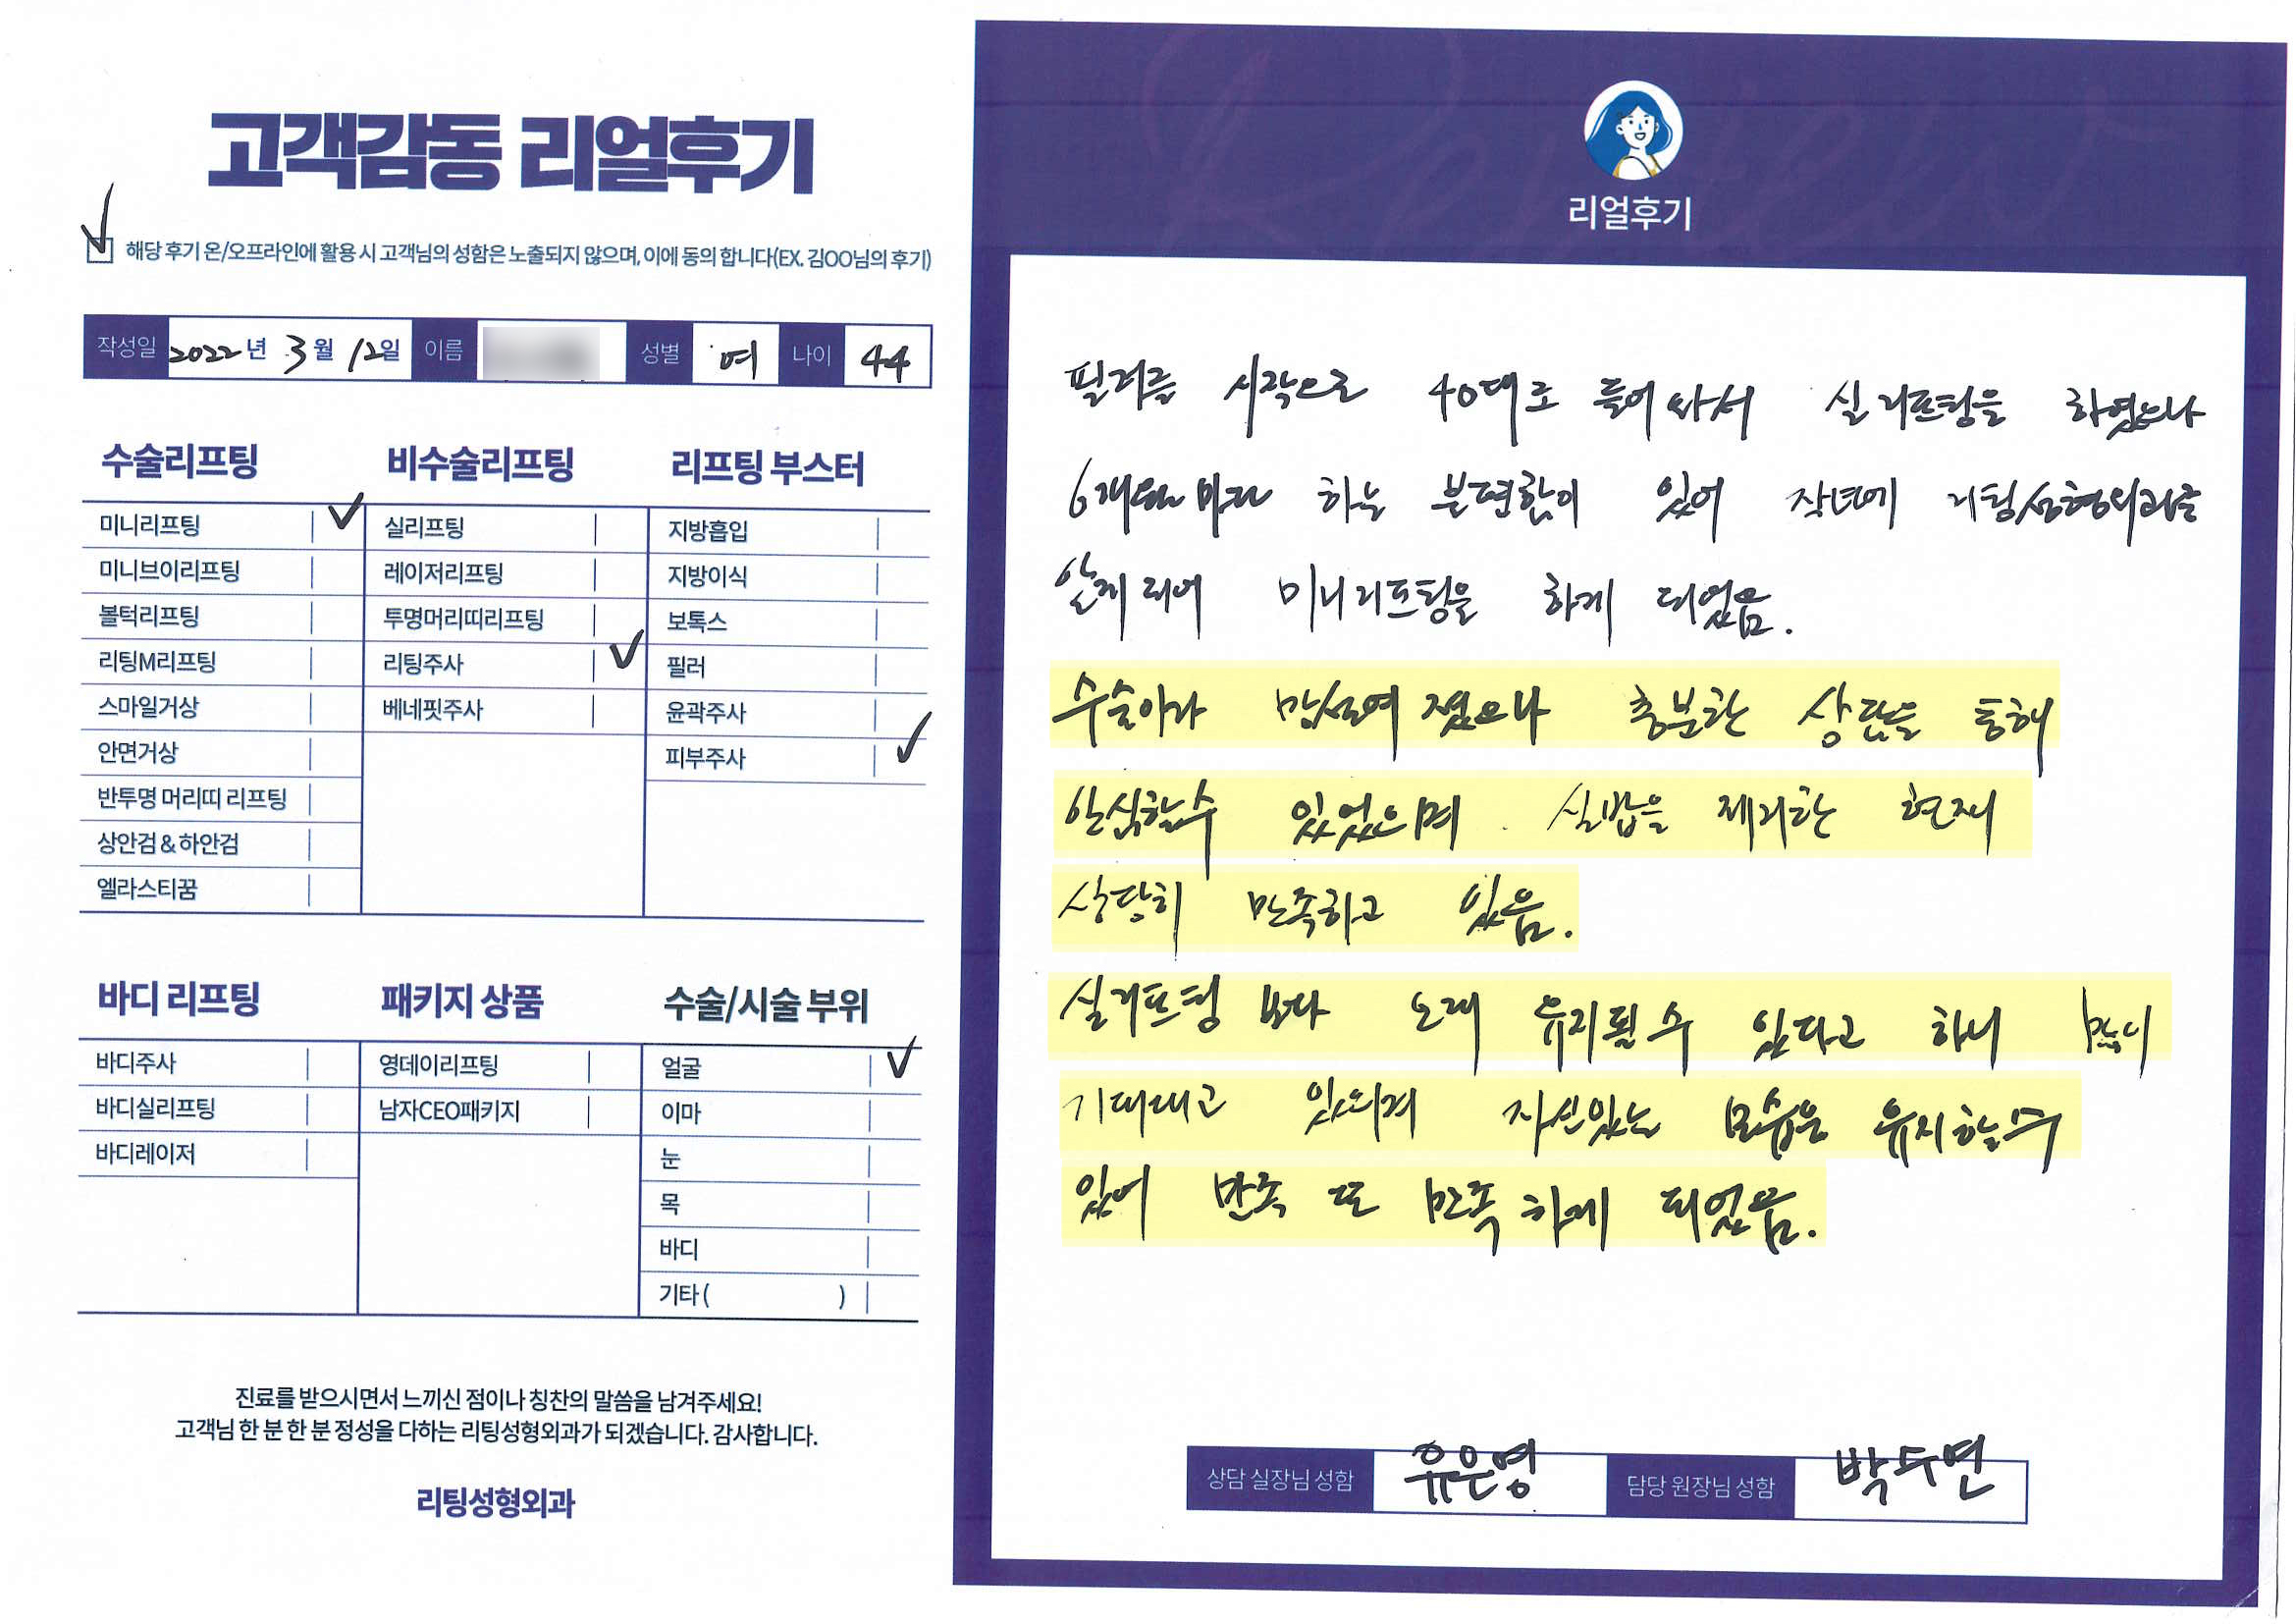 고객감동 리얼후기
해당 후기 온/오프라인에 활용 시 고객님의 성함은 노출되지 않으며, 이에 동의 합니다(EX. 김OO님의 후기)
작성일 2022년 3월 12일 이름 성별 여 나이 44
수술리프팅
미니리프팅
미니브이리프팅
볼턱리프팅
리팅M리프팅
스마일거상
안면거상
반투명 머리띠 리프팅
상안검 & 하안검
엘라스티꿈
비수술리프팅
실리프팅
레이저리프팅
투명머리띠리프팅
리팅주사
베네핏주사
리프팅 부스터
지방흡입
지방이식
보톡스
필러
윤곽주사
피부주사
바디 리프팅
바디주사
바디실리프팅
바디레이저
패키지 상품
영데이리프팅
남자CEO패키지
수술/시술 부위
얼굴
이마
눈
목
바디
기타 ( )
진료를 받으시면서 느끼신 점이나 칭찬의 말씀을 남겨주세요!
고객님 한 분 한 분 정성을 다하는 리팅성형외과가 되겠습니다. 감사합니다.
리팅성형외과
Review
리얼후기
필러를 시작으로 40대로 들어와서 실리프팅을 하였으나
6개월마다 하는 불편함이 있어 작년에 리팅성형외과를
알게 되어 미니리프팅을 하게 되었음.
수술이라 망설여 졌으나 충분한 상담을 통해
안심할수 있었으며. 실밥을 제거한 현재
상당히 만족하고 있음.
실리프팅 보다 오래 유지될수 있다고 하니 많이
기대되고 있으며 자신있는 모습을 유지할수
있어 만족 또 만족 하게 되었음.
상담 실장님 성함 유은영 담당 원장님 성함 박수연